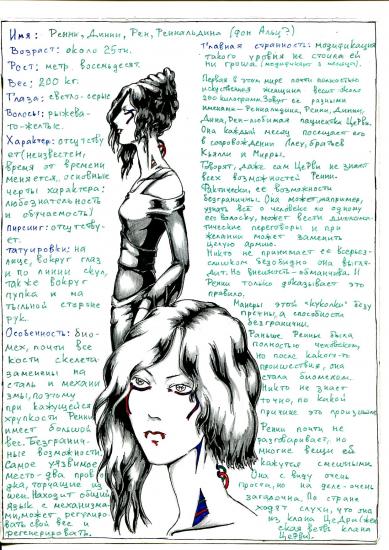 Имя: Ренни, Динни, Рен, Реннальдина (фон Альц?)
Возраст: около 25ти.
Рост: метр восемьдесят.
Вес: 200 кг.
Глаза: светло-серые
Волосы: рыжева-
то-желтые.
Характер: отсутству-
ет (неизвестен,
время от времени
меняется, основные
черты характера:
любознательность
и обучаемость)
Пирсинг: отсутству-
ет.
Татуировки: на
лице, вокруг глаз
и по линии скул,
также вокруг
пупка и на
тыльной стороне
рук.
Особенность: био-
мех, почти все
кости скелета
заменены на
сталь и механи
змы, поэтому
при кажущейся
хрупкости Ренни
имеет большой
вес. Безгранич-
ные возможности.
Самое уязвимое
место - два прово
да, торчащие из
шеи. Находит общий
язык с механизма-
ми, может регулиро-
вать свой вес и
регенерировать.
Главная странность: модификация
такого уровня не стоила ей
ни гроша (модификант 3 месяца).
Первая в этом мире почти полностью
искуственная женщина весит около
200 килограмм. Зовут ее разными
именами - Реннальдина, Динни,
Дина, Рен - любимая пациентка ЦеРви.
Она каждый месяц посещает его
в сопровождении Ллеу, братьев
Кьялли и Мирры.
Говорят, даже сам ЦеРви не знает
всех возможностей Ренни.
Фактически, ее возможности
безграничны. Она может, например,
узнать всё о человеке по одному
его волоску, может вести дипломо-
тические переговоры и при
желании может заменить
целую армию.
Никто не принимает ее всерьез-
слишком безобидно она выгля-
дит. Но внешность - обманчива. И
Ренни только доказывает это
правило.
Манеры этой "куколки" безу
пречны, а способности
безграничны.
Раньше Ренни была
полностью человеком,
но после какого-то
происшествия, она
стала биомехом.
Никто не знает
точно, по какой
причине это произошло.
Ренни почти не
разговаривает, но
многие вещи ей
кажутся смешными.
Она с виду очень
проста, но на деле - очень
загадочна. По стране
ходят слухи, что она
из клана ЦеДри (жен
ская ветвь клана
ЦеРви).